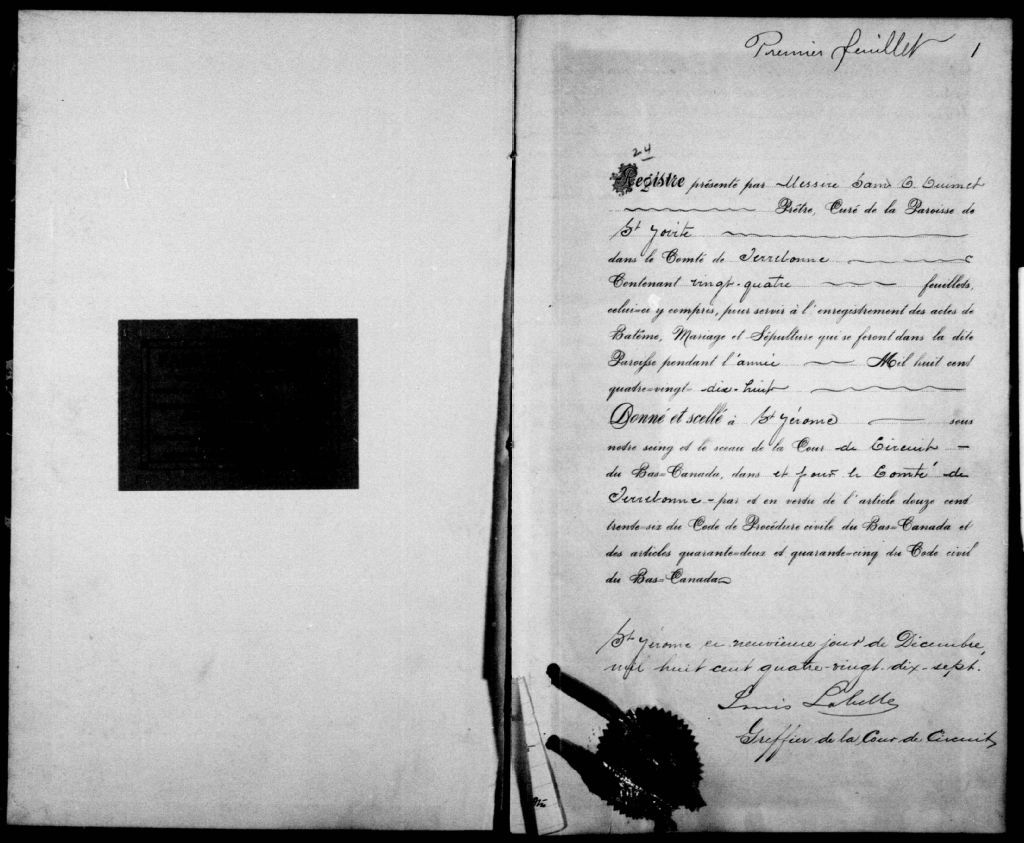 Premier feuillet 1
24
Registre présenté par Messire Sam O. Ouimet
Prêtre, Curé de la Paroisse de
St Jovite
dans le Comté de Terrebonne
Contenant vingt-quatre feuillets,
celui-ci y compris, pour servir à l'enregistrement des actes de
Batême, Mariage et Sépulture qui se feront dans la dite
Paroisse pendant l'année Mil huit cent
quatre-vingt- dix-huit
Donné et scellé à St Jérome sous
notre seing et le sceau de la Cour de Circuit
du Bas-Canada, dans et pour le Comté de
Terrebonne - par et en vertu de l'article douze cent
trente-six du Code de Procédure civile du Bas-Canada et
des articles quarante-deux et quarante-cinq du Code civil
du Bas-Canada
St Jérome ce neuvième jour de Décembre,
mil huit cent quatre-vingt-dix-sept.
Louis Labelle
Greffier de la Cour de Circuit